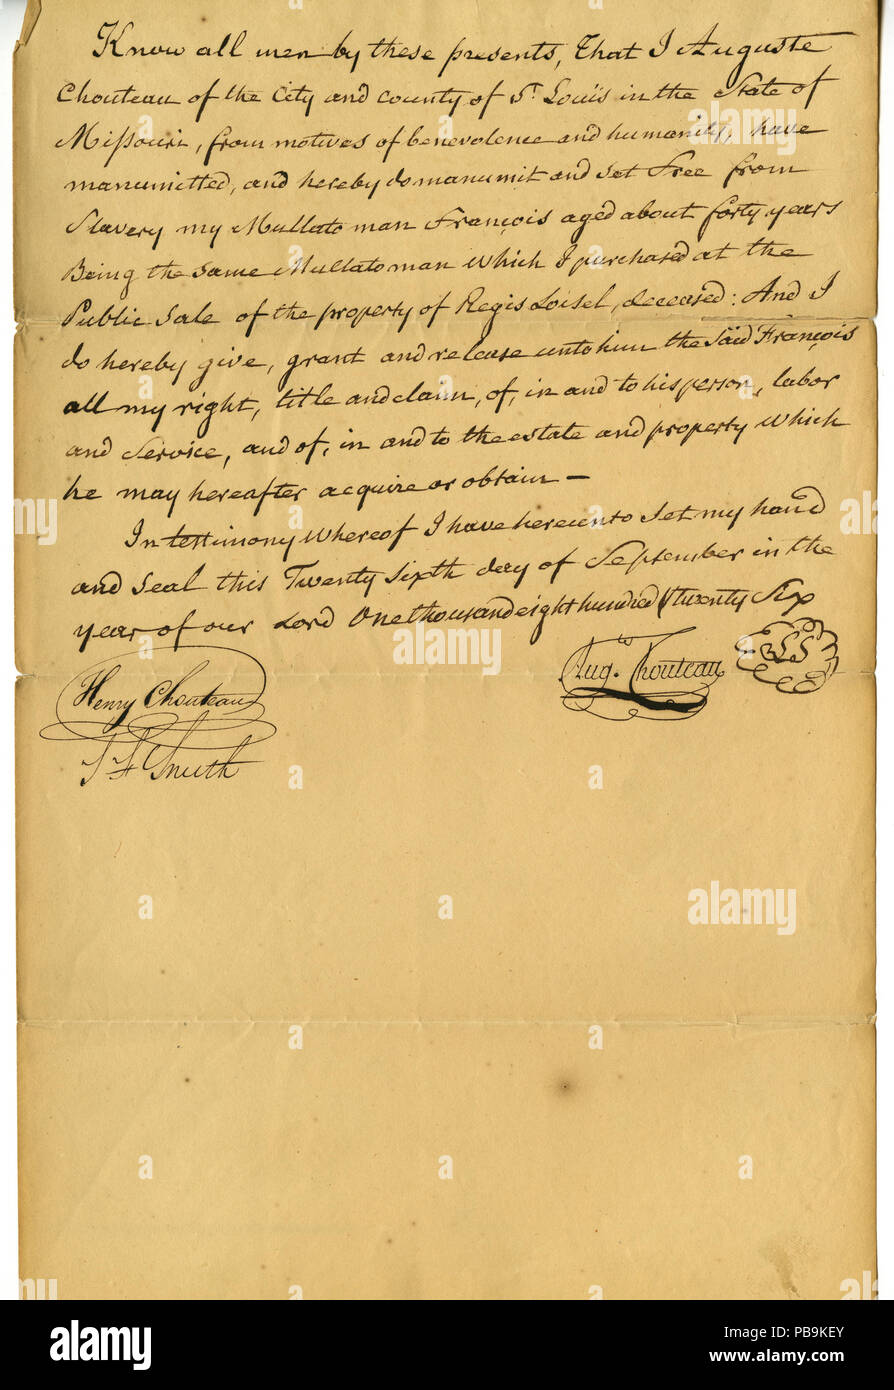 Know all men by these presents, That I Auguste
Chouteau of the City and County of St. Louis in the State of
Missouri, from motives of benevolence and humanity, have
manumitted, and hereby do manumit and set Free from
Slavery my Mullato man François aged about forty years
Being the same Mullato man which I purchased at the
Public Sale of the property of Regis Loisel, deceased: And I
do hereby give, grant and release unto him the said François
all my right, title and claim, of, in and to his person, labor
and Service, and of, in and to the estate and property which
he may hereafter acquire or obtain —
In testimony whereof I have hereunto set my hand
and seal this Twenty Sixth day of September in the
year of our Lord One thousand eight hundred & twenty Six
Aug.te Chouteau LS
Henry Chouteau
Smith
alamy
alamy
Image ID: PB9KEY
www.alamy.com